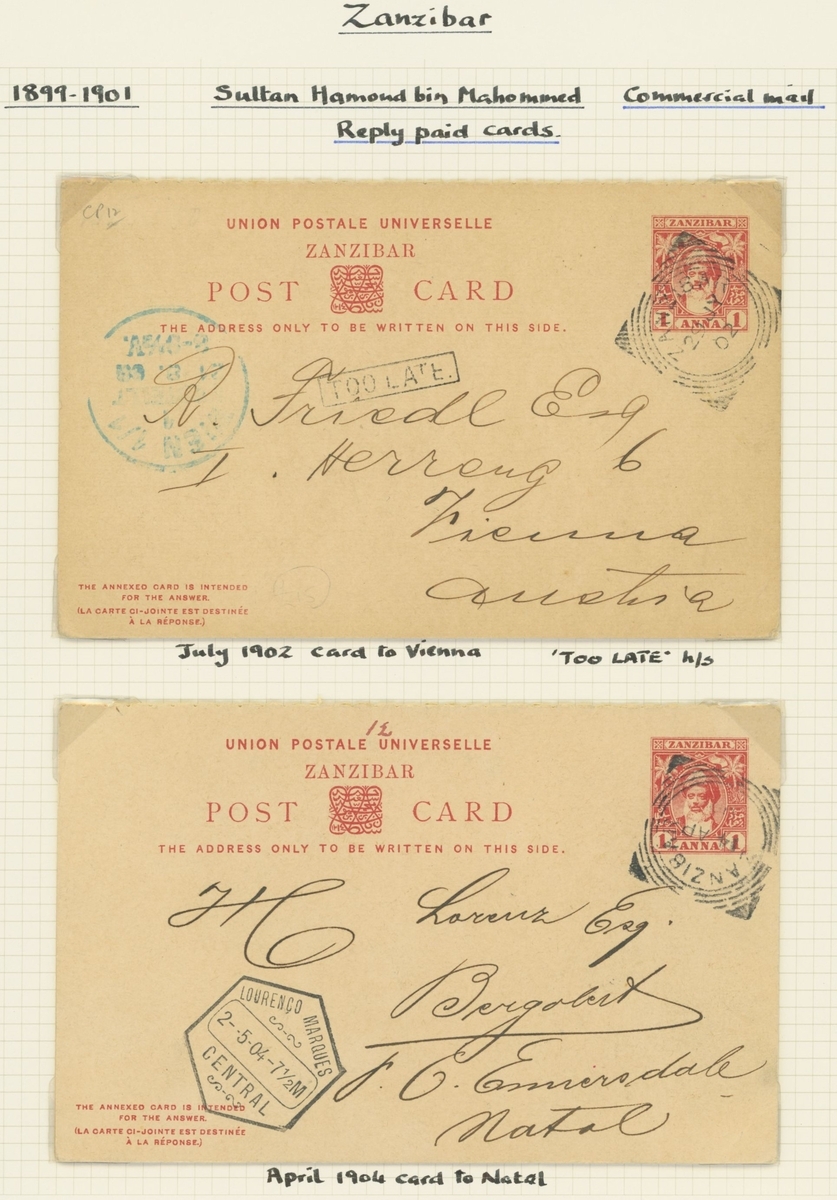 Zanzibar
1899-1901 Sultan Hamoud bin Mahommed Commercial mail
Reply paid cards.
CP12
UNION POSTALE UNIVERSELLE
ZANZIBAR
POST CARD
THE ADDRESS ONLY TO BE WRITTEN ON THIS SIDE.
ZANZIBAR
1 ANNA 1
02
TOO LATE.
R. Friedl Esq
I. Herreng 6
Vienna
Austria
THE ANNEXED CARD IS INTENDED
FOR THE ANSWER.
(LA CARTE CI-JOINTE EST DESTINÉE
À LA RÉPONSE.)
July 1902 card to Vienna 'TOO LATE' h/s
UNION POSTALE UNIVERSELLE
ZANZIBAR
POST CARD
THE ADDRESS ONLY TO BE WRITTEN ON THIS SIDE.
ZANZIBAR
1 ANNA 1
ZANZIBAR
AP
H Lorenz Esq.
P. O. Ennersdale
Natal
LOURENÇO MARQUES
2--5-04-7½M
CENTRAL
THE ANNEXED CARD IS INTENDED
FOR THE ANSWER.
(LA CARTE CI-JOINTE EST DESTINÉE
À LA RÉPONSE.)
April 1904 card to Natal